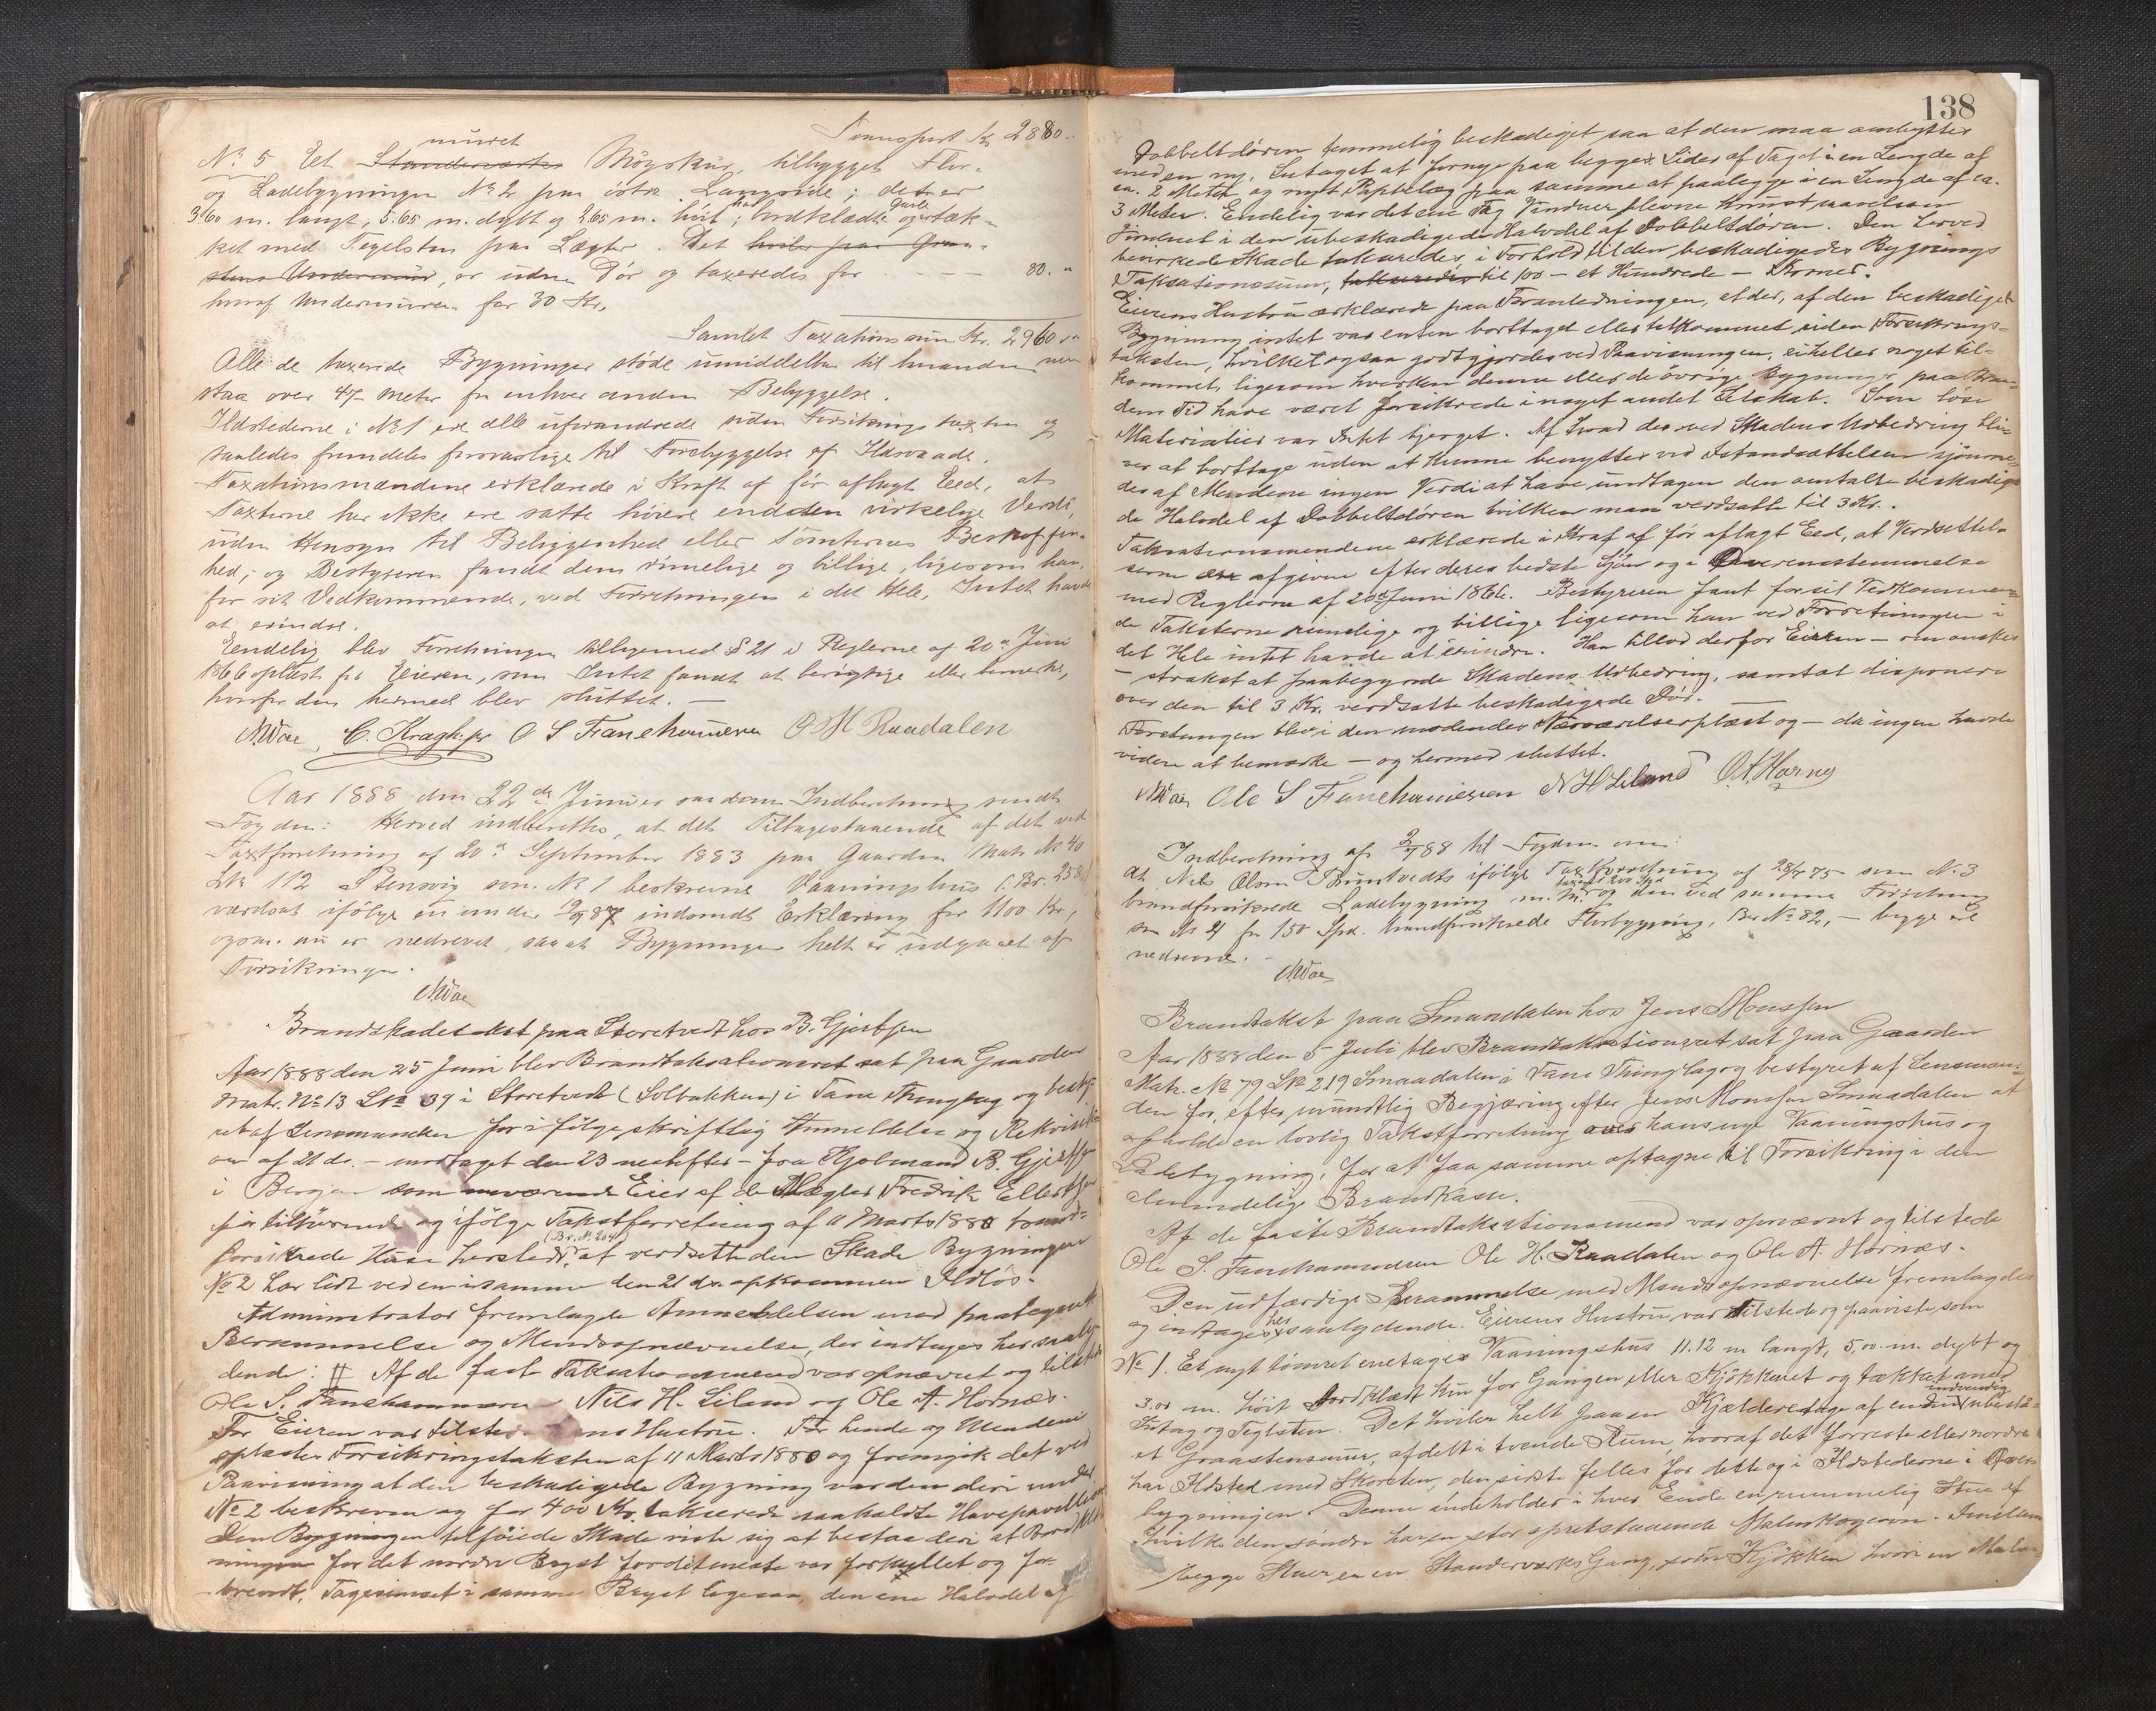 Transport Kr. 2880..
muret
No. 5 Et Standerværks Møgskur, tilbygget Flor-
og Ladebygningen No. 2 paa østre Langside; det er
3.60 m. langt, 5.65 m. dybt og 2.65 m. høit; bordklædt og tæk-
ket med Tegelsten paa Lægter. Det hviler paa Graa-
stens Undermuur, er uden Dør og taxeredes for - - - - 80. "
hvoraf Undermuren for 30 Kr.
Samlet Taxationssum Kr. 2960 "
Alle de taxerede Bygninger støde umiddelbar til hinanden men
staa over 47 Meter fra enhver anden Bebyggelse.
Ildstederne i No. 1 ere alle uforandrede siden Forsikringstaxten og
saaledes fremdeles forsvarlige til Forebyggelse af Ildsvaade.
Taxationsmændene erklærede i Kraft af før aflagt Eed, at
Taxterne her ikke ere satte høiere end den virkelige Værdi,
uden Hensyn til Beliggenhed eller Tomternes Beskaffen-
hed, og Bestyreren fandt dem rimelige og billige, ligesom han,
for sit Vedkommende, ved Forretningen i det Hele, Intet havde
at erindre.
Endelig blev Forretningen tilligemed § 21 i Reglerne af 20de Juni
1866 oplæst for Eieren, som Intet fandt at berigtige eller bemærke,
hvorfor den hermed blev sluttet. —
C. Kragh O S Fanehammeren O H Raadalen
Aar 1888 den 22de Juni er saadan Indberetning sendt
Fogden: Herved indberettes, at det Tilbagestaaende af det ved
Taxtforretning af 20de September 1883 paa Gaarden Matr. No. 40
L.No. 112 Stensvig som No. 1 beskrevne Vaaningshus (Br. 258)
værdsat ifølge en under 19/9 87 indsendt Erklæring for 1100 Kr,
ogsaa nu er nedrevet, saa at Bygningen helt er udgaaet af
Forsikringen.
Brandskadetakst paa Storetvedt hos B. Gjertsen
Aar 1888 den 25 Juni blev Brandtaksationsret sat paa Gaarden
Matr. No. 13 L.No. 39 i Storetvedt (Solbakken) i Fane Thinglag og besty-
ret af Lensmanden for i følge skriftlig Anmeldelse og Rekvisiti-
on af 21 ds. – modtaget den 23 næstefter – fra Kjøbmand B. Gjertsen
i Bergen som nuværende Eier af de Mægler Fredrik Ellertsen
før tilhørende og ifølge Takstforretning af 11 Marts 1880 brand-
(Br. No. 204)
forsikrede Huse hersteds, at verdsette den Skade Bygningen
No. 2 har lidt ved en i samme den 21 ds. opkommen Ildløs.
Administrator fremlagde Anmeldelsen med paategnet
Berammelse og Mendsopnævnelse, der indtages her saaly-
dende: # Af de fast Taksationsmend var opnævnt og tilstede
Ole S. Fanehammeren Nils H. Liland og Ole A. Hornæs.
For Eieren var tilstede hans Hustru. For hende og Mendene
oplæstes Forsikringstaksten af 11 Marts 1880 og fremgik det ved
Paavisning at den beskadigede Bygning var den deri under
No. 2 beskreven og for 400 Kr. takserede saakaldte Havepavillion
Den Bygningen tilføiede Skade viste sig at bestaa deri at Bordklæd-
ningen for det nordre Bryst fordetmeste var forkullet og for-
brendt, Tagskjægget i samme Bryst ligesaa, den ene Halvdel af
138
Dobbeltdøren temmelig beskadiget saa at den maa ombyttes
med en ny. Sutaget at fornye paa begge Sider af Taget i en Lengde af
ca. 2 Meter og nyt Papbelæg paa samme at paalegge i en Lengde af ca.
3 Meter. Endelig var det ene Fag Vinduer plevne knust
i den ubeskadigede Halvdel af Dobbeltdøren. Den herved
bevirkede Skade takseredes, i Forhold til den beskadigede Bygnings
Taksationssum, takseredes til 100 – et Hundrede – Kroner.
Eierens Hustru erklærede paa Foranledningen, at der, af den beskadigede
Bygning intet var enten borttaget eller tilkommet siden Forsikrings-
taksten, hvilket ogsaa godtgjordes ved Paavisningen, eiheller noget til-
kommet, ligesom hverken denne eller de øvrige Bygninger paa
den Tid have været forsikrede i noget andet Selskab. Som løse
Materialier var Intet bjerget. Af hvad der ved Skadens Udbedring bli-
ver at borttage uden at kunne benyttes ved Istandsættelsen skjønne-
des af Mendene ingen Verdi at have undtagen den omtalte beskadige-
de Halvdel af Dobbeltdøren hvilken man verdsatte til 3 Kr.
Taksationsmendene erklærede i Kraf af før aflagt Eed, at Verdsettel-
serne ere afgivne efter deres bedste Skjøn og i Overensstemmelse
med Reglerne af 20de Juni 1866. Bestyreren fant for sit Vedkommen-
de Taksterne rimelige og billige ligesom han ved Forretningen i
det Hele intet havde at erindre. Han tillod derfor Eieren – om ønskes
– strakst at paabegynde Skadens Udbedring, samtat disponere
over den til 3 Kr. verdsatte beskadigede Dør.
Forretningen blev i den mødendes Nærværelse oplæst og – da ingen havde
videre at bemærke – og hermed sluttet.
Ole S Fanehammeren N H Liland O. A. Hornes
Indberetning af 2/7 88 til Fogden om:
At Nils Olsen Smintvedts ifølge Taxtforretning af 28/8 75 som No. 3
brandforsikrede Ladebygning m. m. og den ved samme Forretning
som No. 4 for 150 Spd. brandforsikrede Florbygning, Br. No. 82, – begge ere
nedrevne.
Brandtakst paa Smaadalen hos Jens Monssen
Aar 1888 den 5 Juli blev Brandtaksationsret sat paa Gaarden
Matr. No. 79 L.No. 219 Smaadalen i Fane Thinglag og bestyret af Lensman-
den for, efter mundtlig Begjæring efter Jens Monssen Smaadalen at
afholde en lovlig Takstforretning over hans nye Vaaningshus og
Ladebygning, for at faa samme optagne til Forsikring i den
almindelige Brandkasse.
Af de faste Brandtaksationsmend var opnævnt og tilstede
Ole S. Fanehammeren Ole H. Raadalen og Ole A. Hornæs.
Den udfærdige Berammelse med Mandsopnævnelse fremlagdes
og indtages her saalydende. Eierens Hustru var tilstede og paaviste som
No. 1. Et nyt tømret eenetages Vaaningshus 11.12 m langt, 5,00 m. dybt og
3.00 m. høit Bordklædt kun for Gangen eller Kjøkkenet og tækket med
Sutag og Teglsten. Det hviler helt paa en Kjælderetage af en indvendig
et Graastensmur, afdelt i tvende Rum, hvoraf det forreste eller nordre
har Ildsted med Skorsten, den sidste felles for dette og i Ildstederne i Over-
bygningen. Denne indeholder i hver Ende en rummelig Stue af
hvilke den søndre har en stor opretstaaende Malmkogeovn. Imellem
begge Stuer er en Standerværks Gang, som Kjøkken hvori en